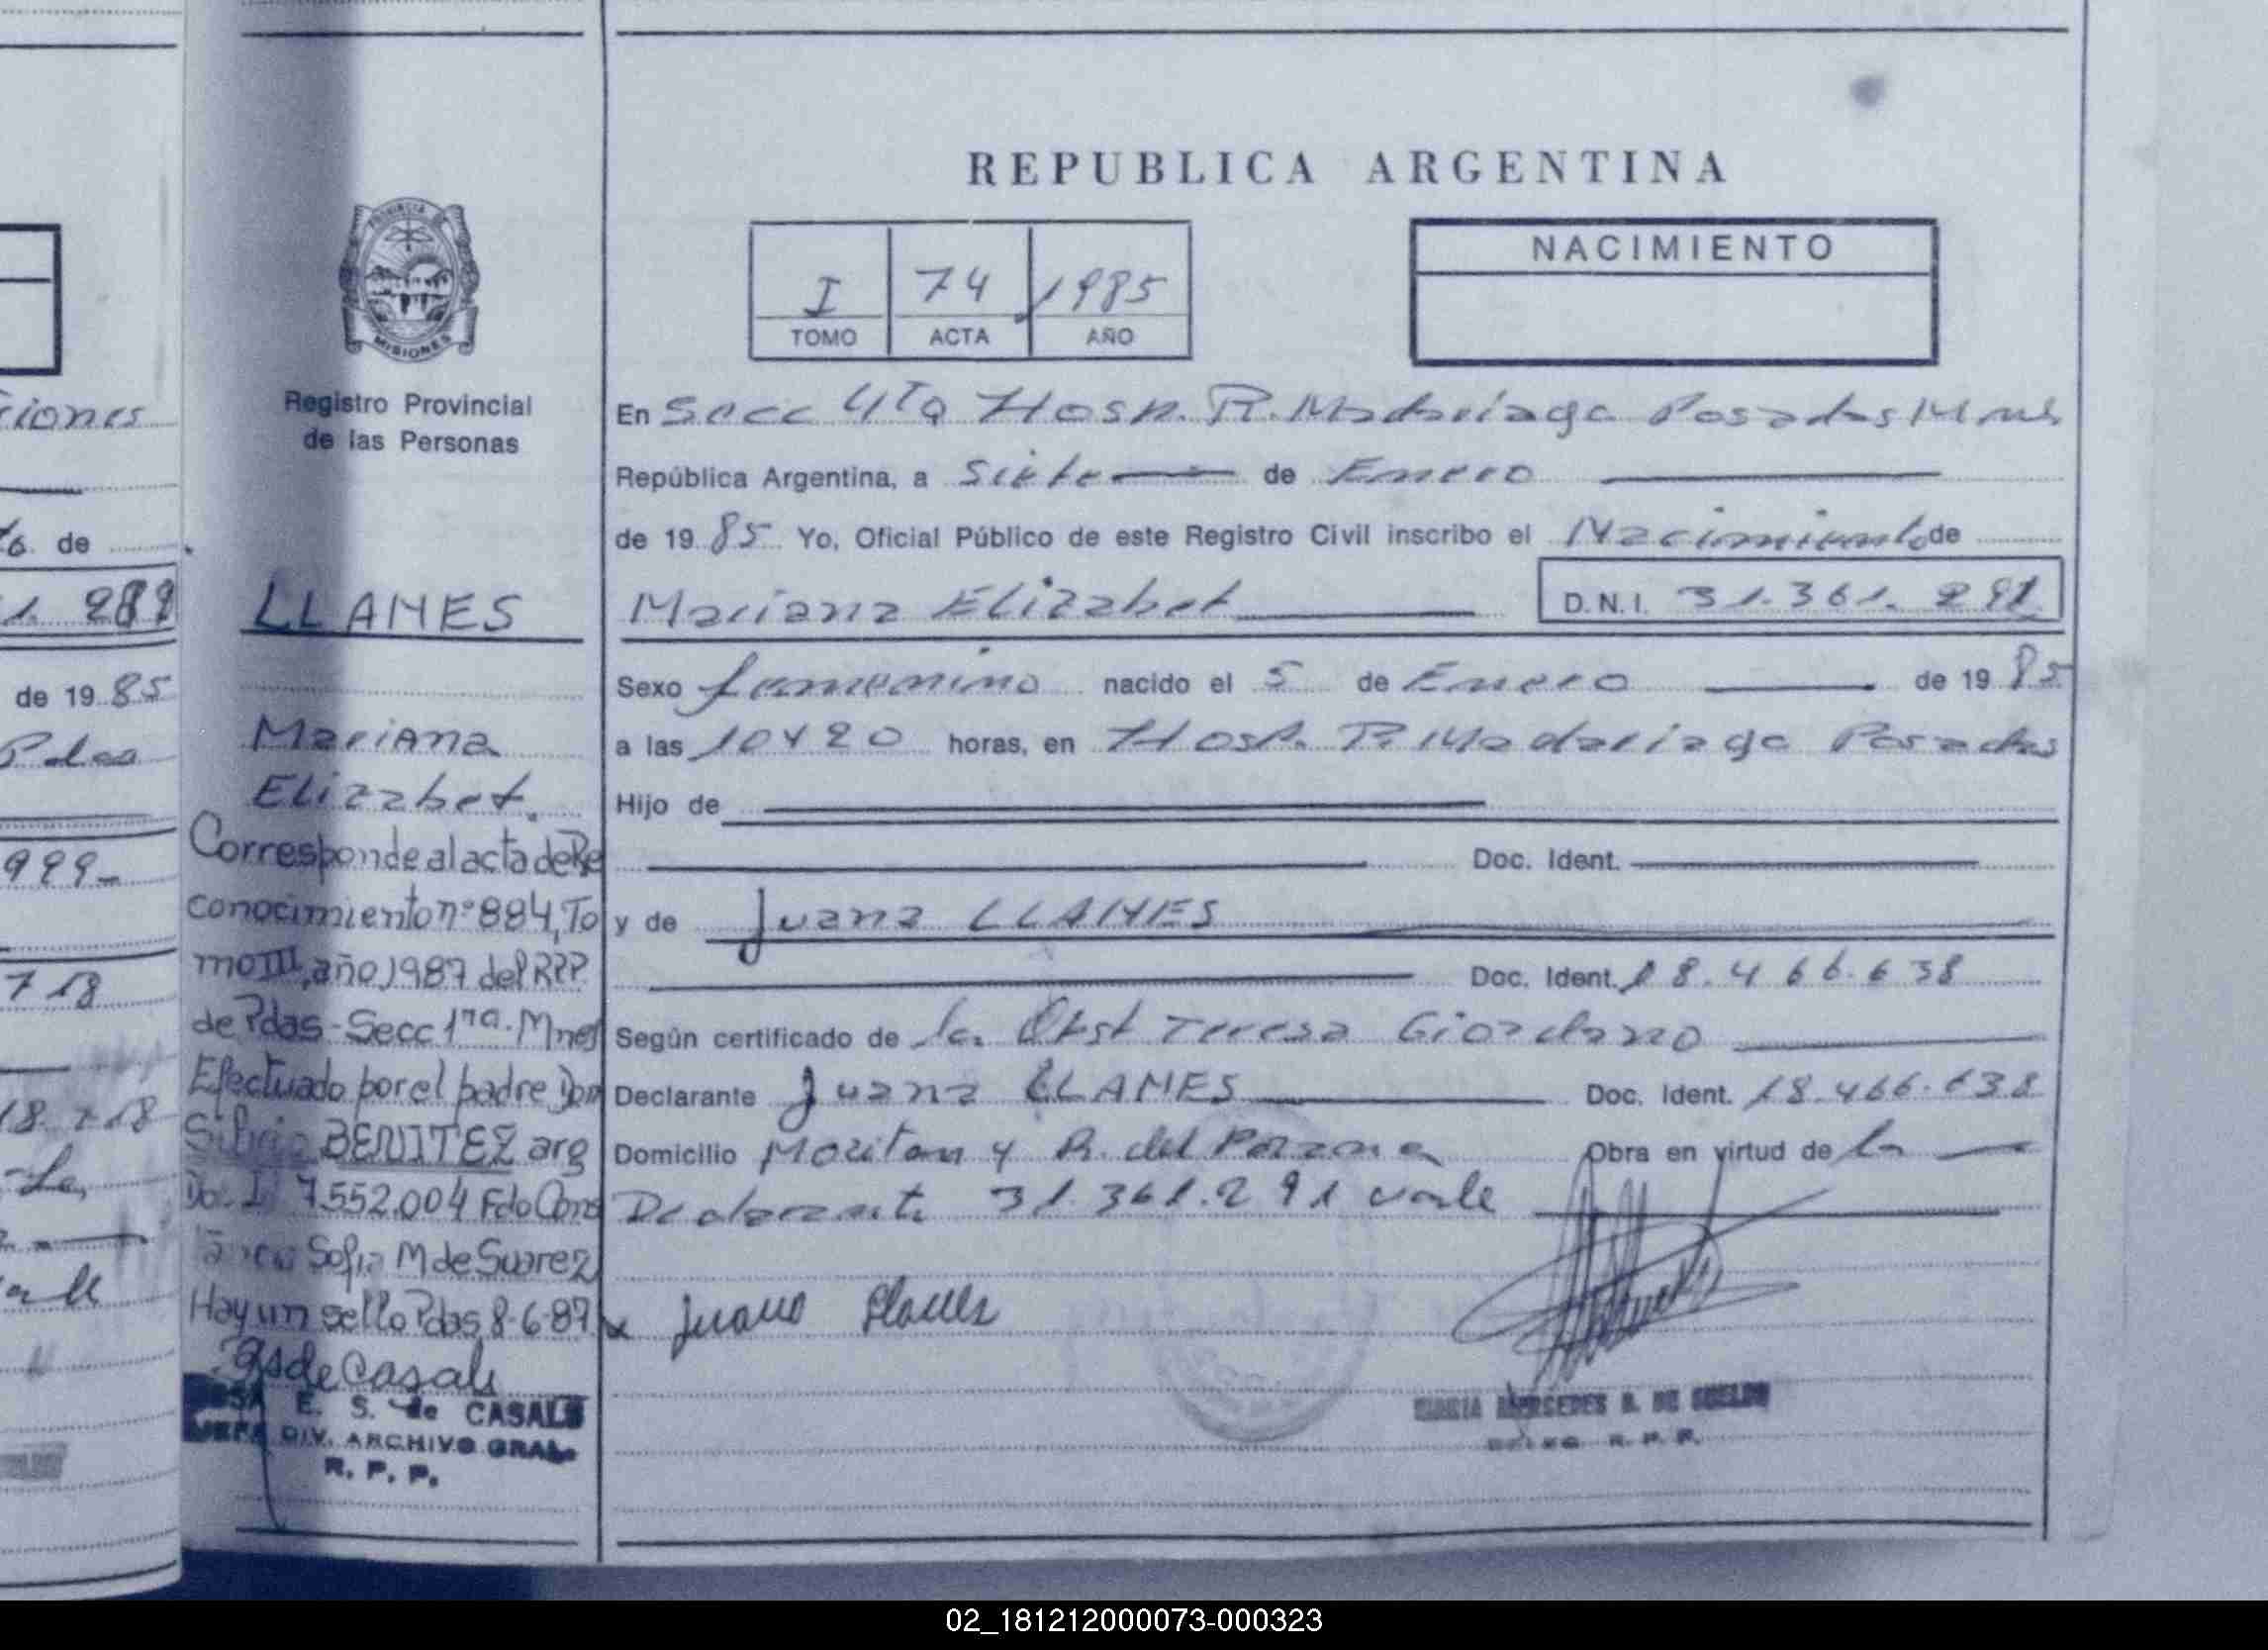 ciones
to de
1. 289
de 19 85
Pdas
999-
718
18.718
REPUBLICA ARGENTINA
PROVINCIA DE
MISIONES
Registro Provincial
de las Personas
I 74 1985
TOMO ACTA AÑO
NACIMIENTO
En Secc 4Ta Hosp. R. Madariaga Posadas Mnes
República Argentina, a Siete de Enero
de 1985 Yo, Oficial Público de este Registro Civil inscribo el Nacimiento de
LLAMES
Mariana Elizabet D.N.I. 31.361.291
Sexo femenino nacido el 5 de Enero de 1985
Mariana
a las 10 y 20 horas, en Hosp. R Madariaga Posadas
Elizabet.
Hijo de
Doc. Ident.
y de Juana LLAMES
Doc. Ident. 18.466.638
Según certificado de la Obst Teresa Giordano
Declarante Juana LLAMES Doc. Ident. 18.466.638
Domicilio y R. del Obra en virtud de la
Declarante 31.361.291 vale
Juana Llames
Corresponde al acta de Re
conocimiento nº 884, To
mo III, año 1987 del RPP
de Pdas - Secc 1ra. Mnes
Efectuado por el padre Don
Silvio BENITEZ arg
Doc I 7.552.004 Fdo
Sofia M de Suarez
Hay un sello Pdas 8-6-87
de Casals
E. S. de CASALS
JEFA DIV. ARCHIVO GRAL.
R. P. P.
MARIA MERCEDES DE
R. P. P.
02_181212000073-000323